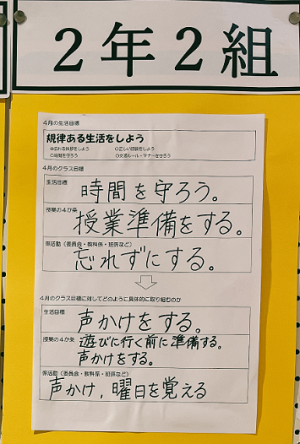 ２年２組
４月の生活目標
規律ある生活をしよう
○時間を守ろう
４月のクラス目標
生活目標
時間を守ろう。
授業の４か条
授業準備をする。
係活動（委員会・教科係・班長など）
忘れずにする。
４月のクラス目標に対してどのように具体的に取り組むのか
生活目標
声かけをする。
授業の４か条
遊びに行く前に準備する。
声かけをする。
係活動（委員会・教科係・班長など）
声かけ，曜日を覚える